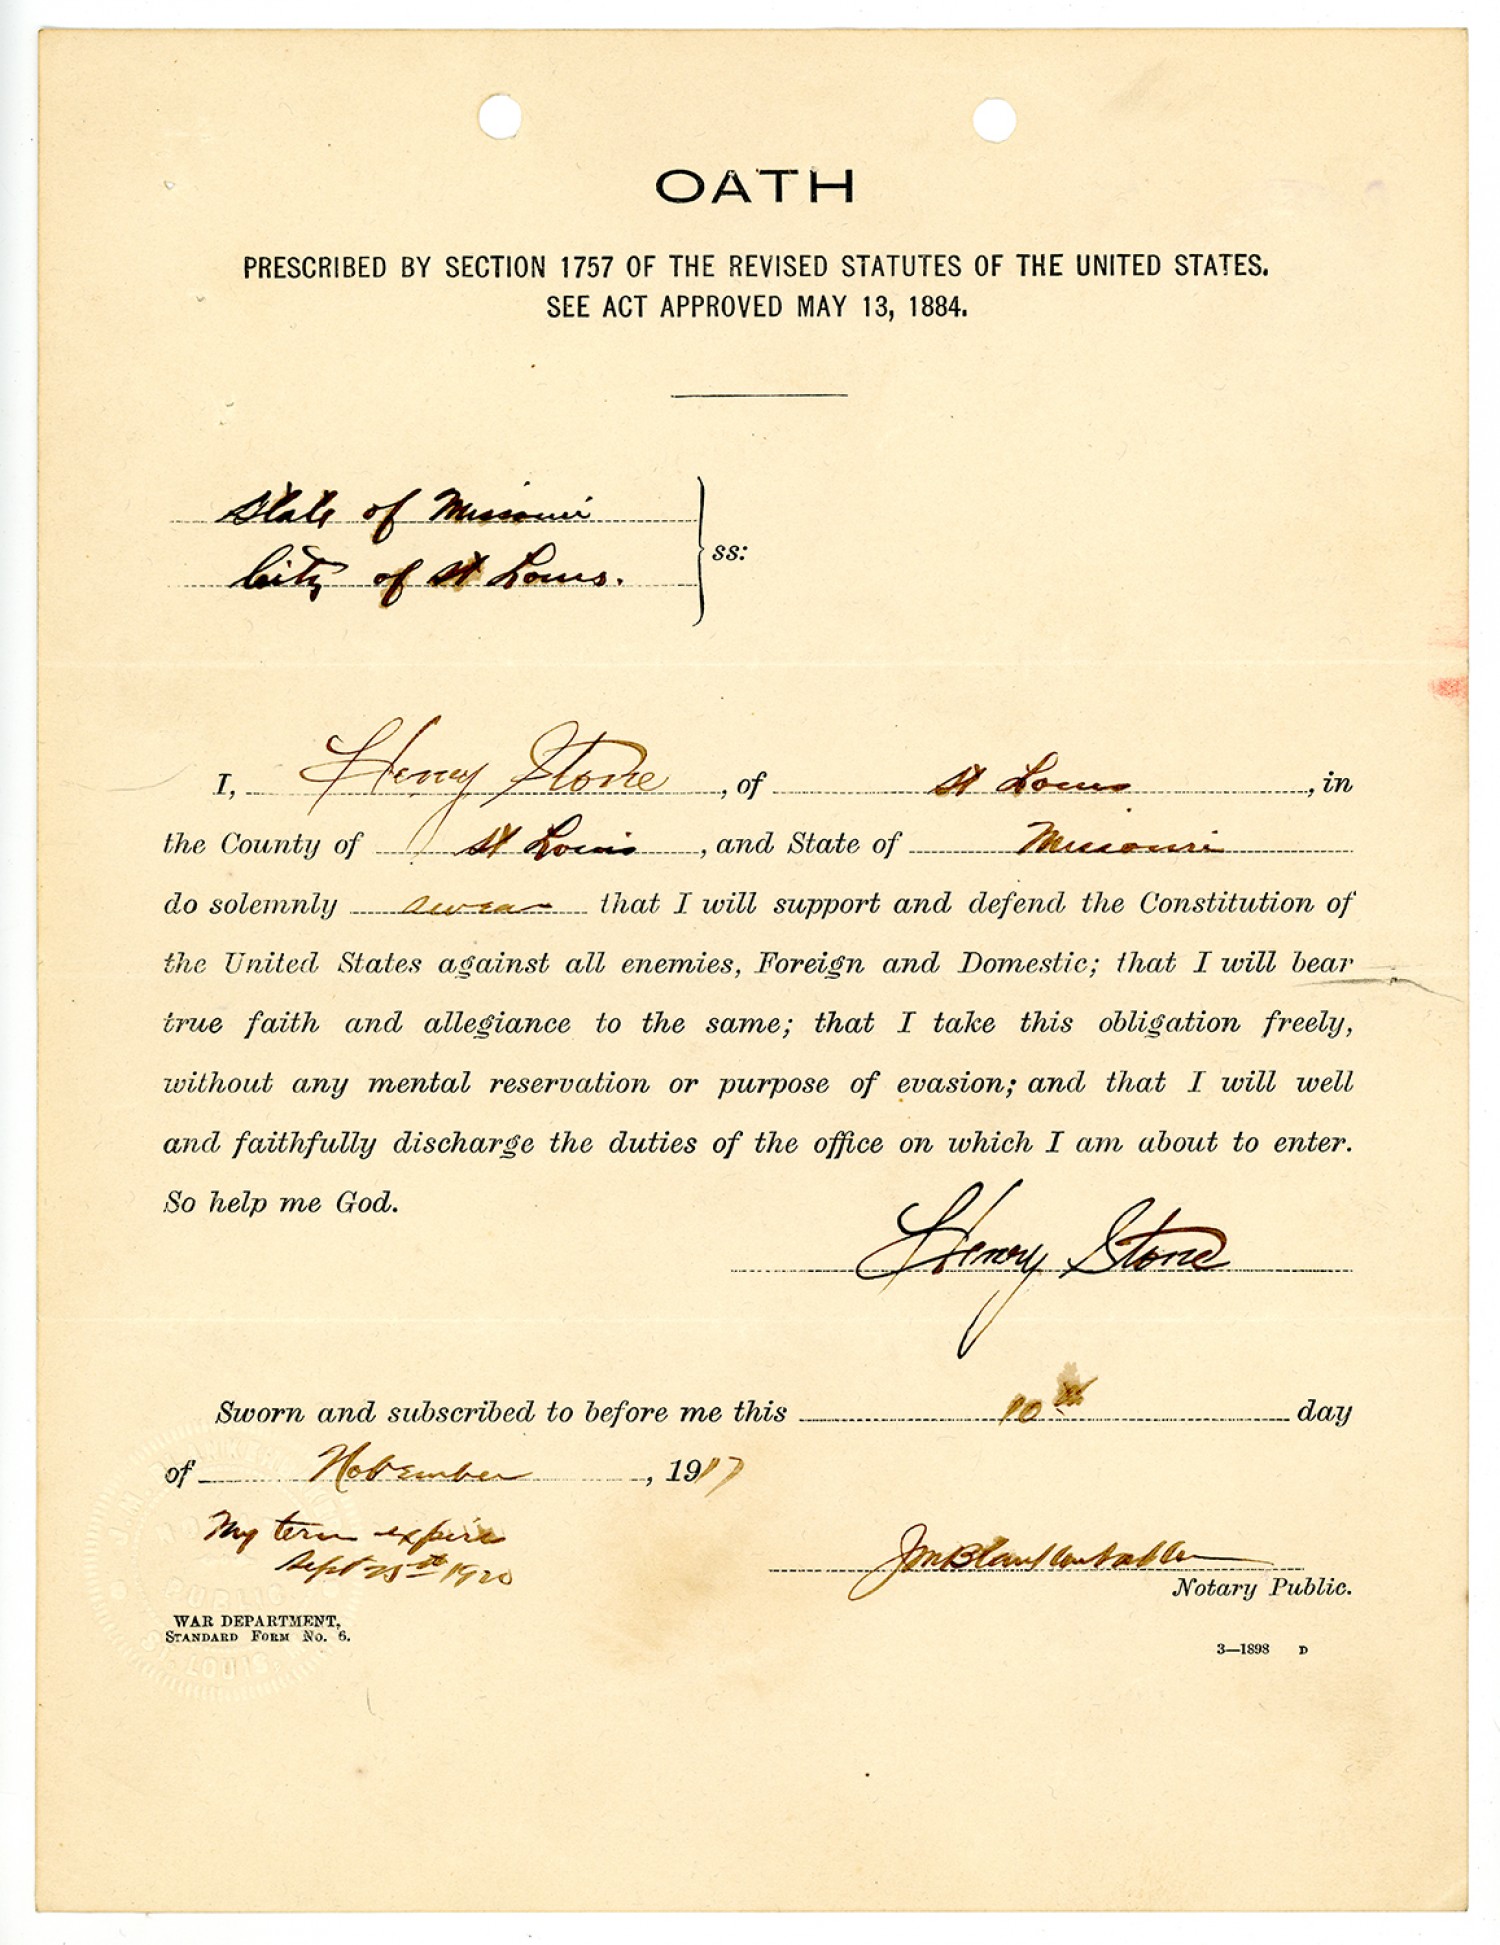 OATH
PRESCRIBED BY SECTION 1757 OF THE REVISED STATUTES OF THE UNITED STATES.
SEE ACT APPROVED MAY 13, 1884.
State of Missouri
City of St Louis.
ss:
I, Henry Stone, of St Louis, in
the County of St Louis, and State of Missouri
do solemnly swear that I will support and defend the Constitution of
the United States against all enemies, Foreign and Domestic; that I will bear
true faith and allegiance to the same; that I take this obligation freely,
without any mental reservation or purpose of evasion; and that I will well
and faithfully discharge the duties of the office on which I am about to enter.
So help me God.
Henry Stone
Sworn and subscribed to before me this 10th day
of November, 1917
My term expires
Sept 25th 1920
Notary Public.
WAR DEPARTMENT,
STANDARD FORM NO. 6.
3—1898 D
PUBLIC
ST. LOUIS,